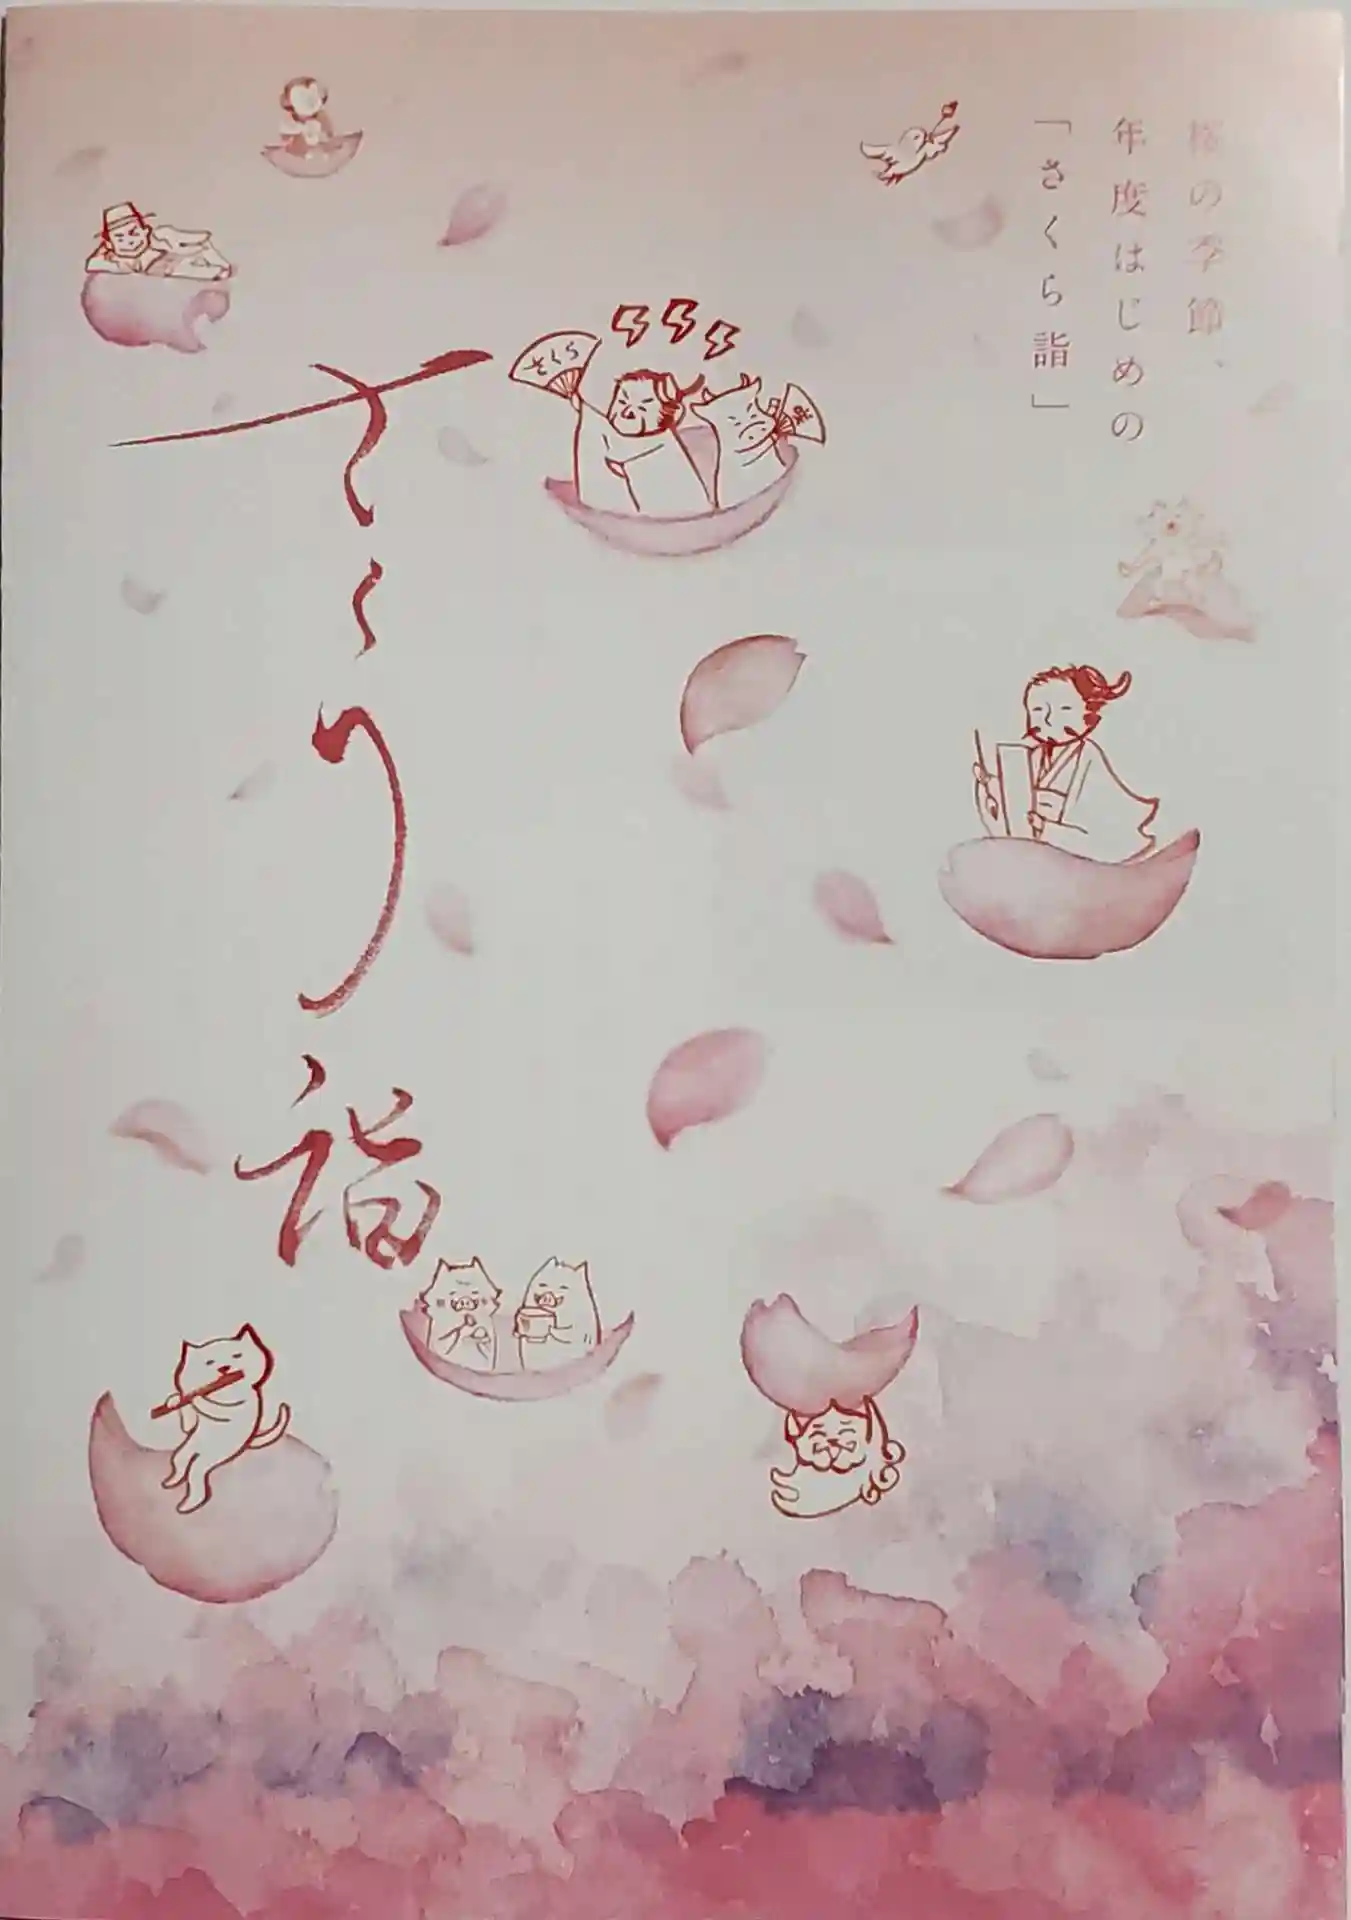 桜の季節、
年度はじめの
「さくら詣」
さくら
さくら詣